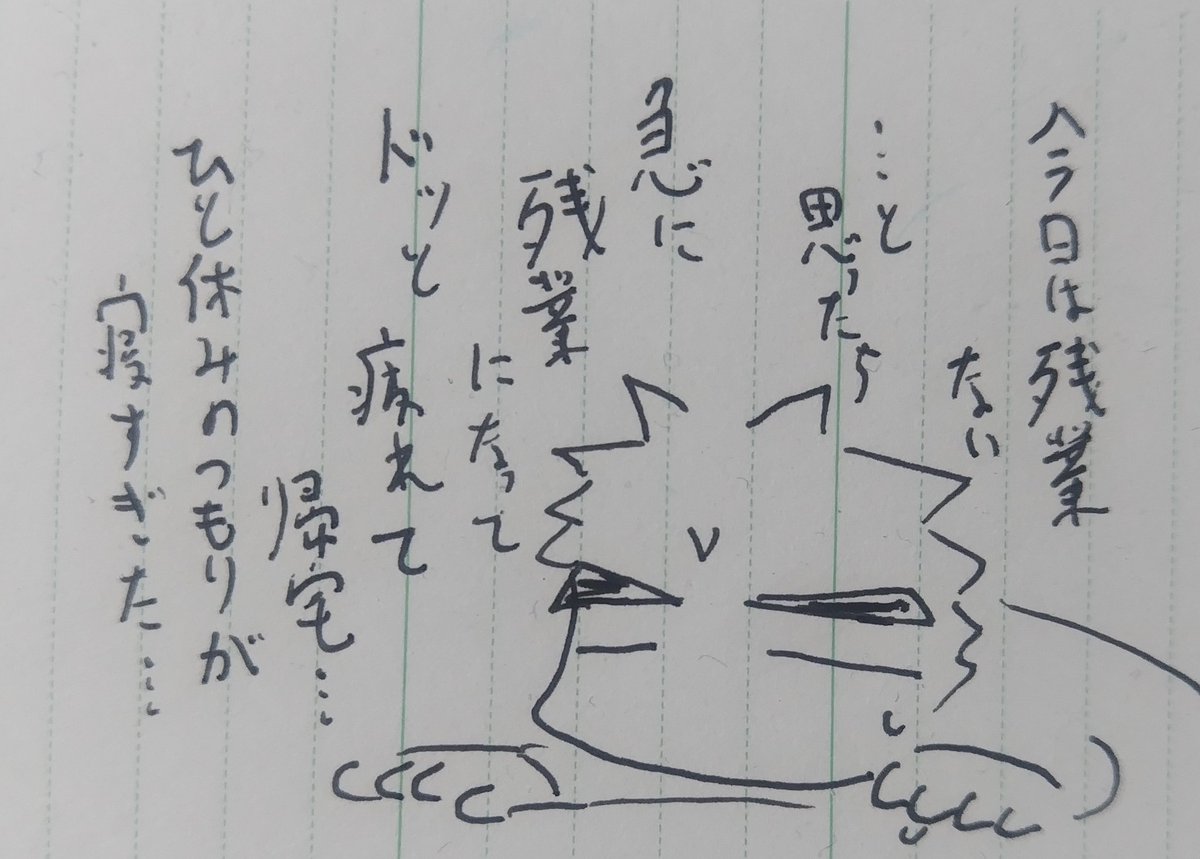 今日は残業
ない
…と
思ったら
急に
残業
になって
ドッと
疲れて
帰宅…
ひと休みのつもりが
寝すぎた…